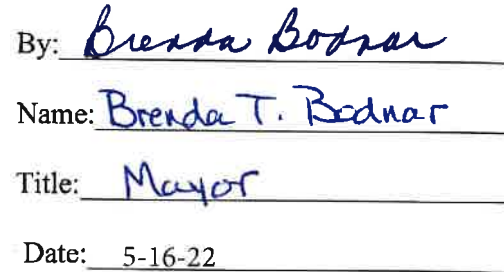 By: Brenda Bodnar
Name: Brenda T. Bodnar
Title: Mayor
Date: 5-16-22